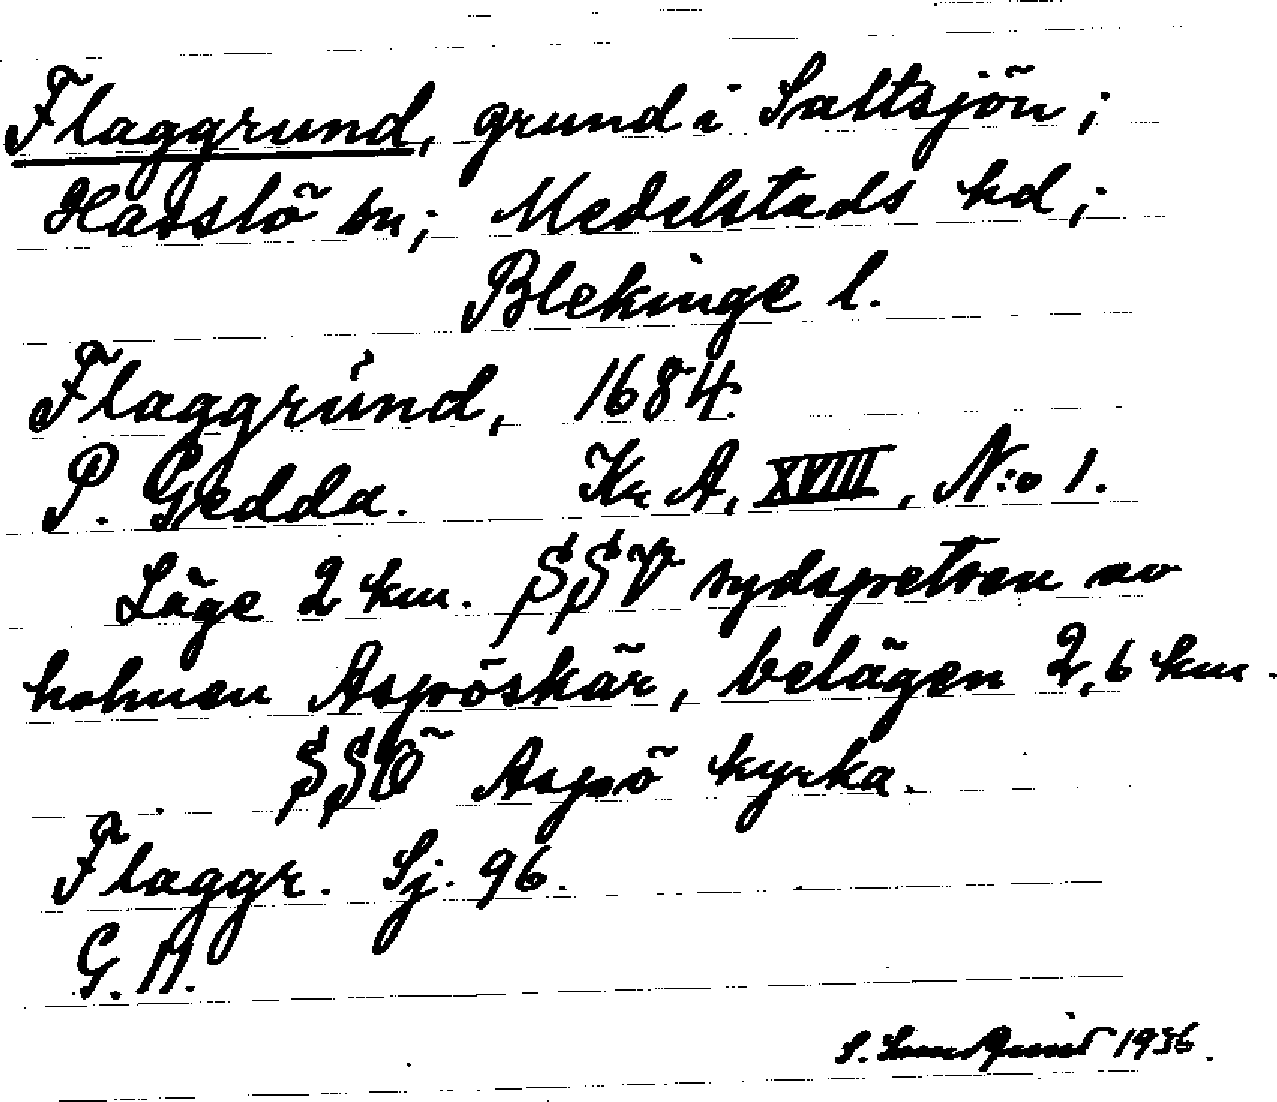 Flaggrund, grund i Saltsjön;
Hasslö sn; Medelstads hd;
Blekinge l.
Flaggrund, 1684.
P. Gedda. Kr. A, XVIII, N:o 1.
Läge 2 km. SSV sydspetsen av
holmen Aspöskär, belägen 2,6 km.
SSÖ Aspö kyrka.
Flaggr. Sj. 96.
G. A.
S. 1936.